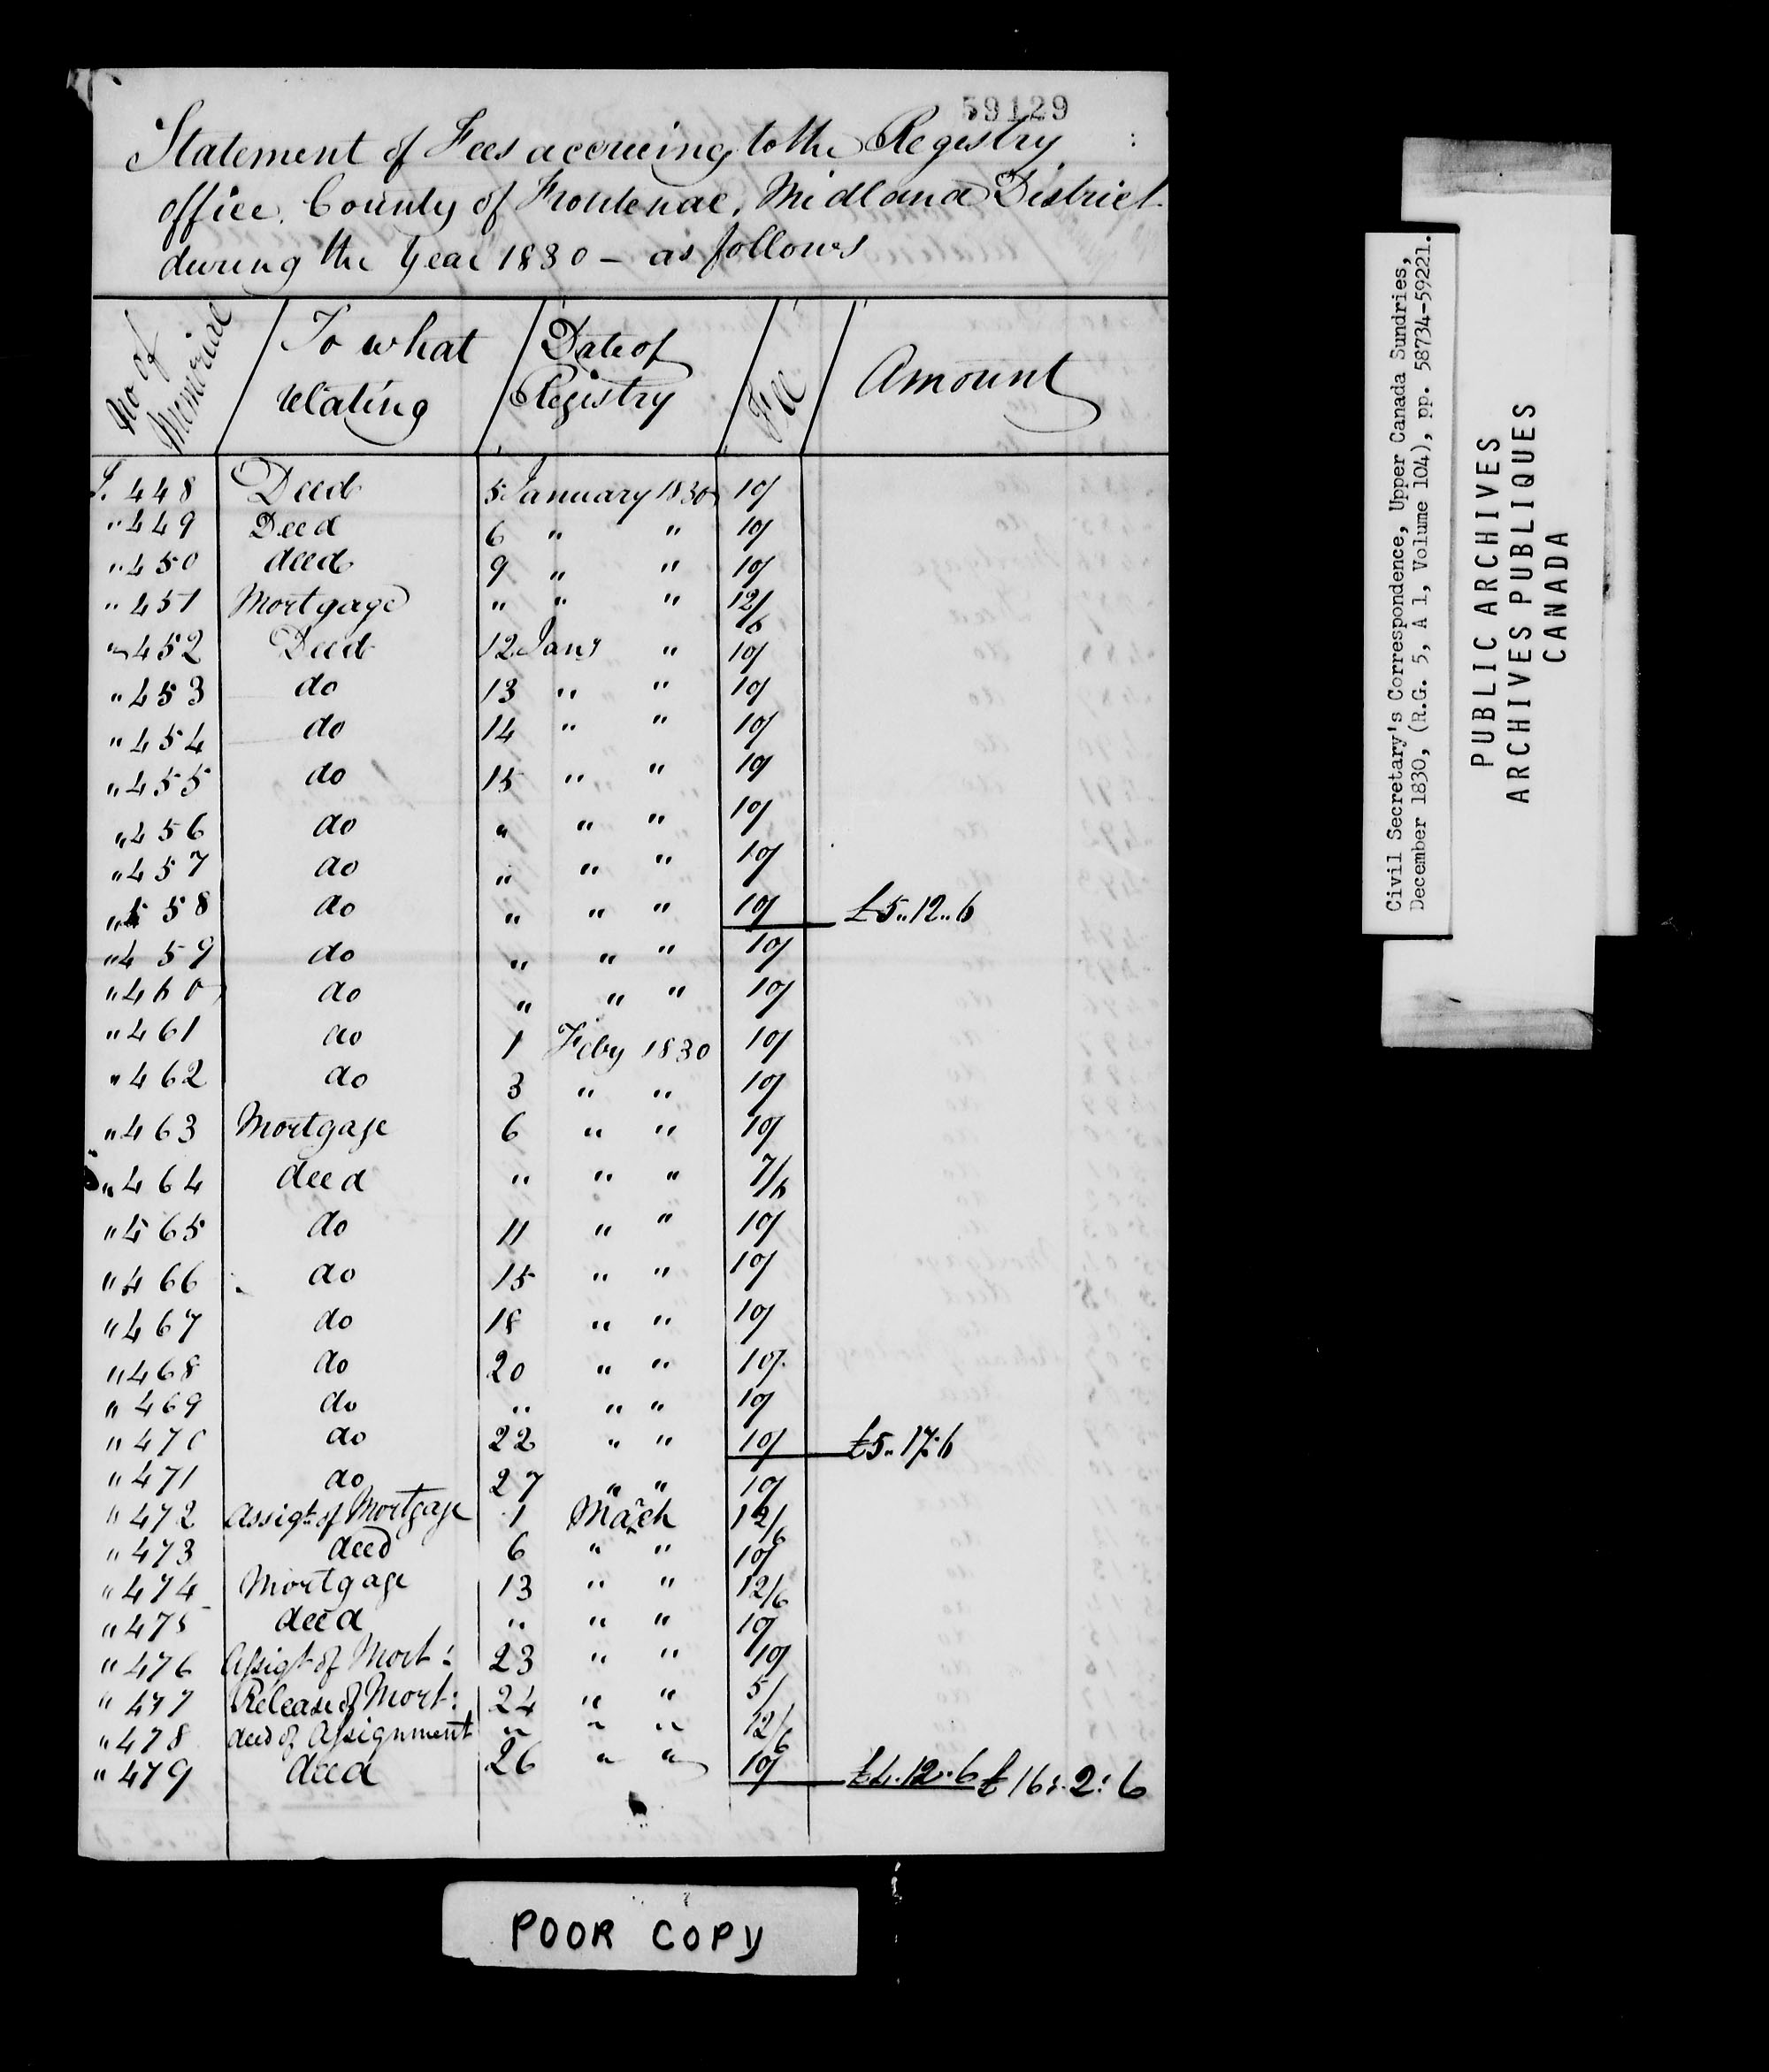 59129
Statement of Fees accrueing to the Registry
office. County of Frontenac, Midland District.
during the Year 1830 – as follows
No of Memorial To what relating Date of Registry Fee Amount
L. 448 Deed 5 January 1830 10/
" 449 Deed 6 " " 10/
" 450 deed 9 " " 10/
" 451 Mortgage " " " 12/6
" 452 Deed 12 Jany " 10/
" 453 do 13 " " 10/
" 454 do 14 " " 10/
" 455 do 15 " " 10/
" 456 do " " " 10/
" 457 do " " " 10/
" 558 do " " " 10/ £5..12..6
" 459 do " " " 10/
" 460 do " " " 10/
" 461 do 1 Feby 1830 10/
" 462 do 3 " " 10/
" 463 Mortgage 6 " " 10/
" 464 deed " " " 7/6
" 465 do 11 " " 10/
" 466 do 15 " " 10/
" 467 do 18 " " 10/
" 468 do 20 " " 10/.
" 469 do " " " 10/
" 470 do 22 " " 10/ £5..17:6
" 471 do 27 " " 10/
" 472 Assigt. of Mortgage 1 March 12/6
" 473 deed 6 " " 10/
" 474 Mortgage 13 " " 12/6
" 475 deed " " " 10/
" 476 Assigt of Mort: 23 " " 10/
" 477 Release of Mort: 24 " " 5/
" 478 deed of Assignment " " " 12/6
" 479 deed 26 " " 10/ £4..12..6 £16:.2:6
POOR COPY
Civil Secretary's Correspondence, Upper Canada Sundries,
December 1830, (R.G. 5, A 1, Volume 104), pp. 58734-59221.
PUBLIC ARCHIVES
ARCHIVES PUBLIQUES
CANADA